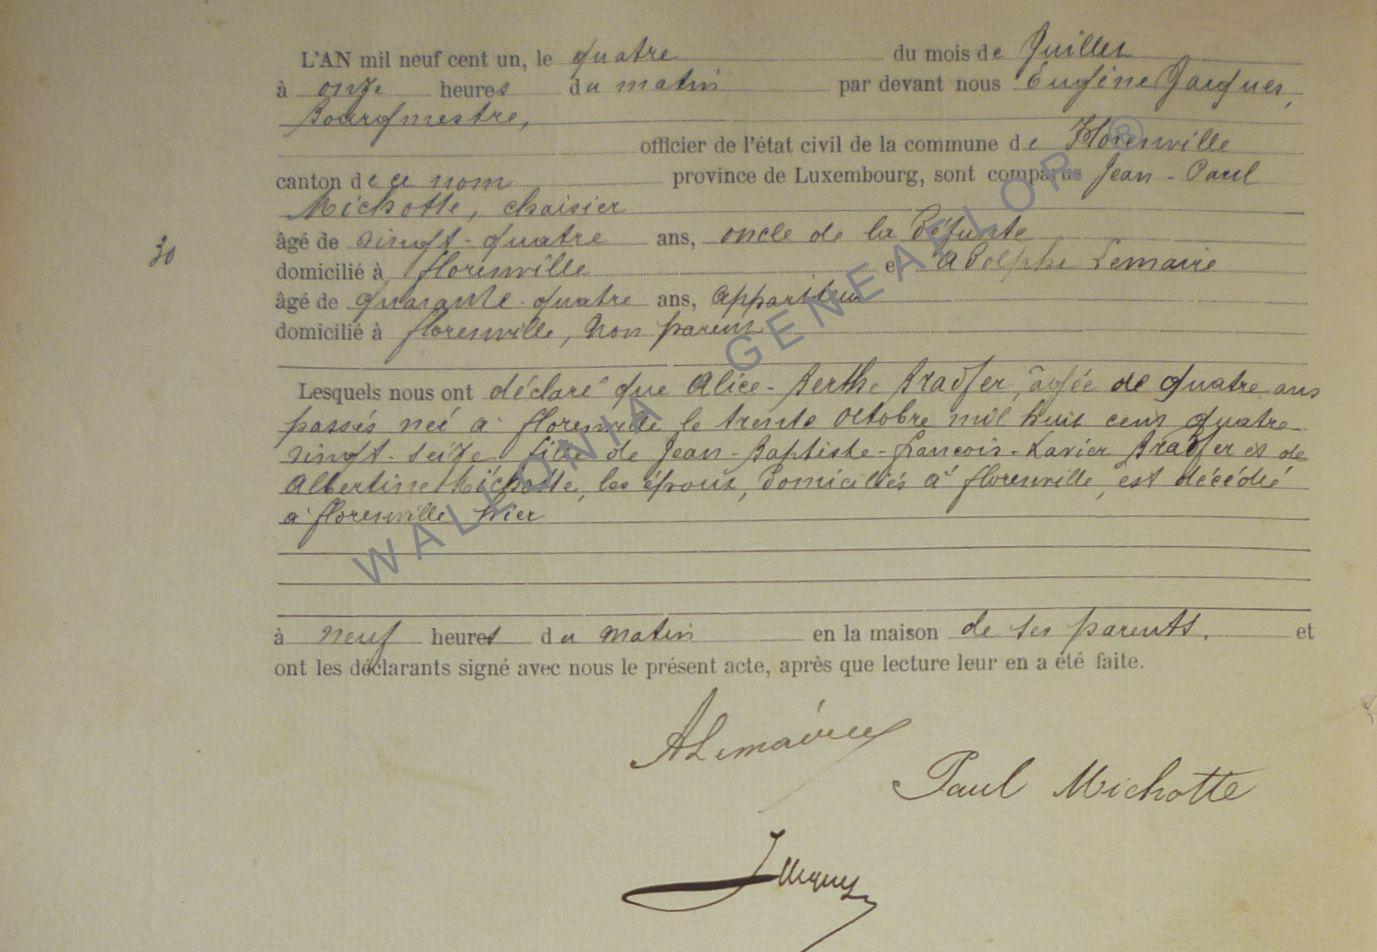 L'AN mil neuf cent un, le quatre du mois de Juillet
à onze heures du matin par devant nous Eugène Jacques,
Bourgmestre,
officier de l'état civil de la commune de Florenville
canton de ce nom province de Luxembourg, sont comparus Jean-Paul
Michotte, chaisier
30
âgé de vingt-quatre ans, oncle de la défunte
domicilié à florenville et Adolphe Lemaire
âgé de quarante-quatre ans, appariteur
domicilié à florenville, non parent
Lesquels nous ont déclaré que Alice-Berthe Bradfer, âgée de quatre ans
passés née à florenville le trente octobre mil huit cent quatre-
vingt-seize fille de Jean-Baptiste-François-Xavier Bradfer et de
Albertine Michotte, les époux, domiciliés à florenville, est décédée
à florenville hier
à neuf heures du matin en la maison de ses parents, et
ont les déclarants signé avec nous le présent acte, après que lecture leur en a été faite.
ALemaire
Paul Michotte
WALLONIA GENEAFLOR ®